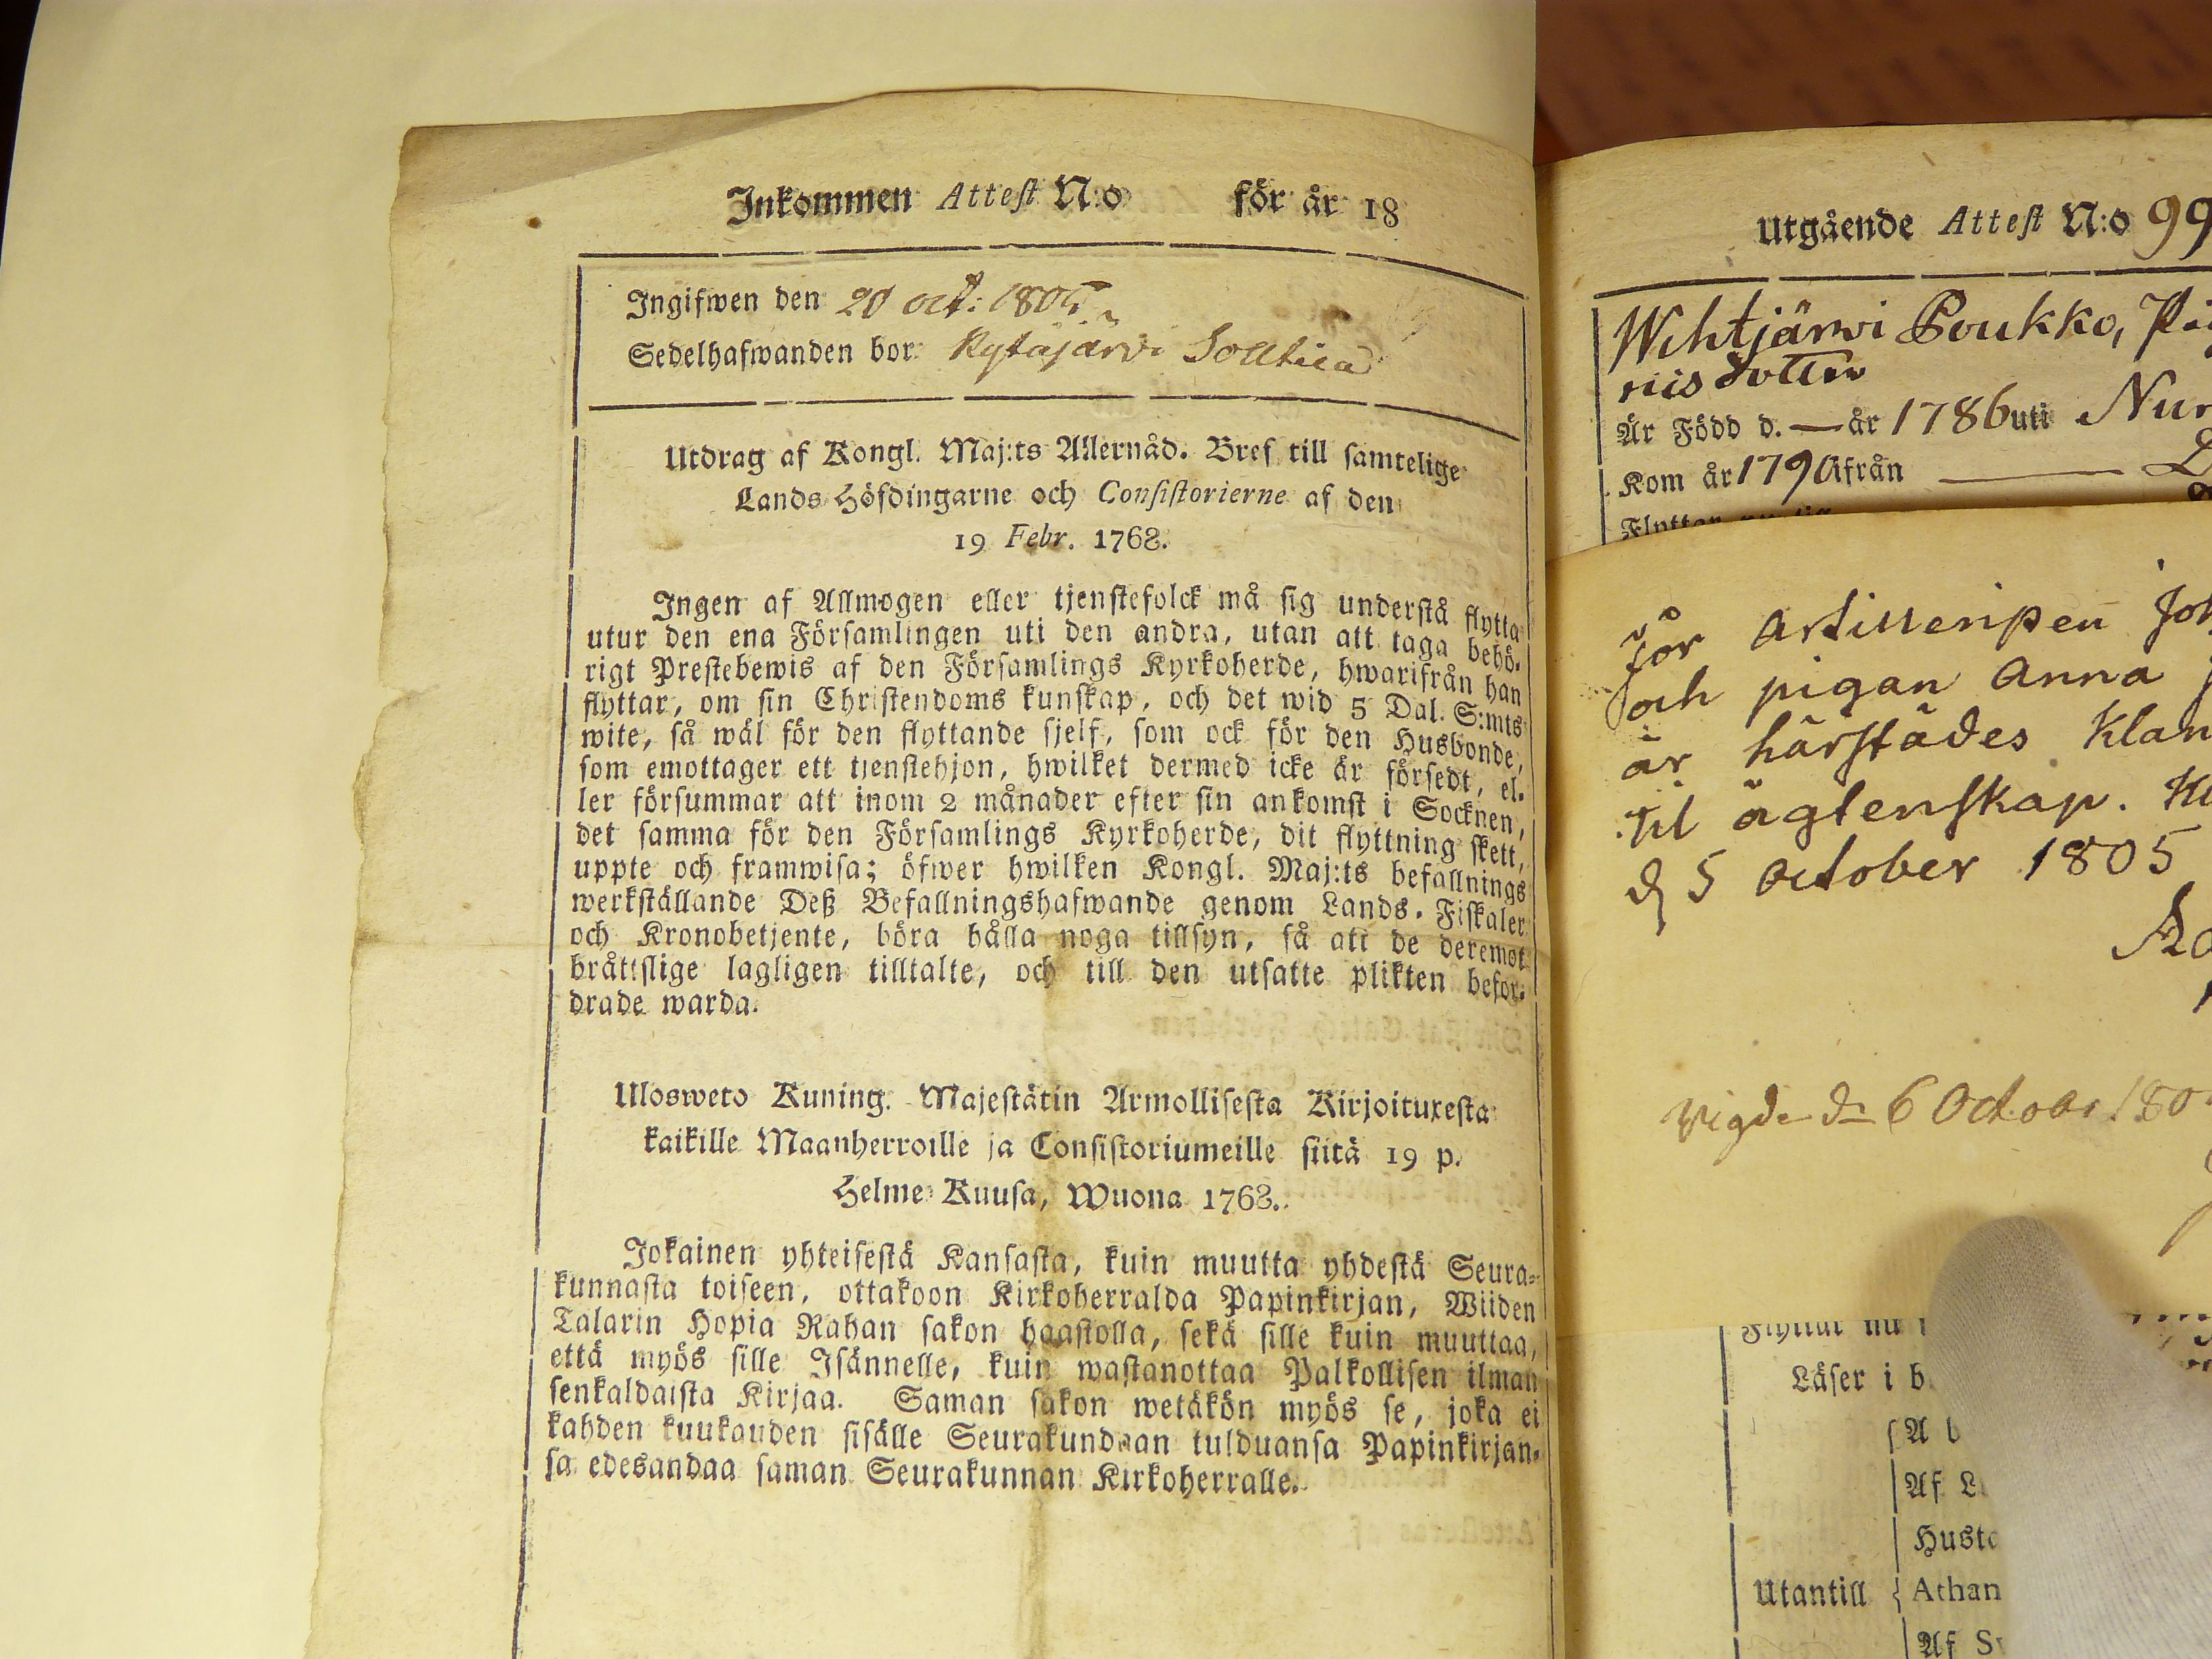 Inkommen Attest N:o för år 18
Ingifwen den 20 oct: 1805
Sedelhafwanden bor: Kytäjärvi
Utdrag af Kongl. Maj:ts Allernåd. Bref till samtelige
Lands Höfdingarne och Consistorierne af den
19 Febr. 1768.
Ingen af Allmogen eller tjenstefolck må sig understå flytta
utur den ena Församlingen uti den andra, utan att taga behö-
rigt Prestebewis af den Församlings Kyrkoherde, hwarifrån han
flyttar, om sin Christendoms kunskap, och det wid 5 Dal. S:mts
wite, så wäl för den flyttande sjelf, som ock för den Husbonde,
som emottager ett tjenstehjon, hwilket dermed icke är försedt, el-
ler försummar att inom 2 månader efter sin ankomst i Socknen,
det samma för den Församlings Kyrkoherde, dit flyttning skett,
uppte och framwisa; öfwer hwilken Kongl. Maj:ts befallnings
werkställande Deß Befallningshafwande genom Lands-Fiskaler
och Kronobetjente, böra hålla noga tillsyn, så att de deremot
bråttslige lagligen tilltalte, och till den utsatte plikten befor-
drade warda.
Ulosweto Kuning. Majestätin Armollisesta Kirjoituxesta
kaikille Maanherroille ja Consistoriumeille siitä 19 p.
Helme Kuusa, Wuona 1768.
Jokainen yhteisestä Kansasta, kuin muutta yhdestä Seura-
kunnasta toiseen, ottakoon Kirkoherralda Papinkirjan, Wiiden
Talarin Hopia Rahan sakon haastolla, sekä sille kuin muuttaa,
että myös sille Isännelle, kuin wastanottaa Palkollisen ilman
senkaldaista Kirjaa. Saman sakon wetäkön myös se, joka ei
kahden kuukauden sisälle Seurakundaan tulduansa Papinkirjan-
sa edesandaa saman Seurakunnan Kirkoherralle.
Utgående Attest N:o 99
Wihtjärwi Poukko, Pig
nis dotter
Är Född d. — år 1786 uti Nur
Kom år 1790 ifrån
För Artilleripen Joh
och pigan Anna
är härstädes Klan
til ägtenskap.
d 5 October 1805
Vigde d 6 Octobr 180
Flyttar nu
Läser i b
A b
Af L
Husta
Utantill { Athan
Af S